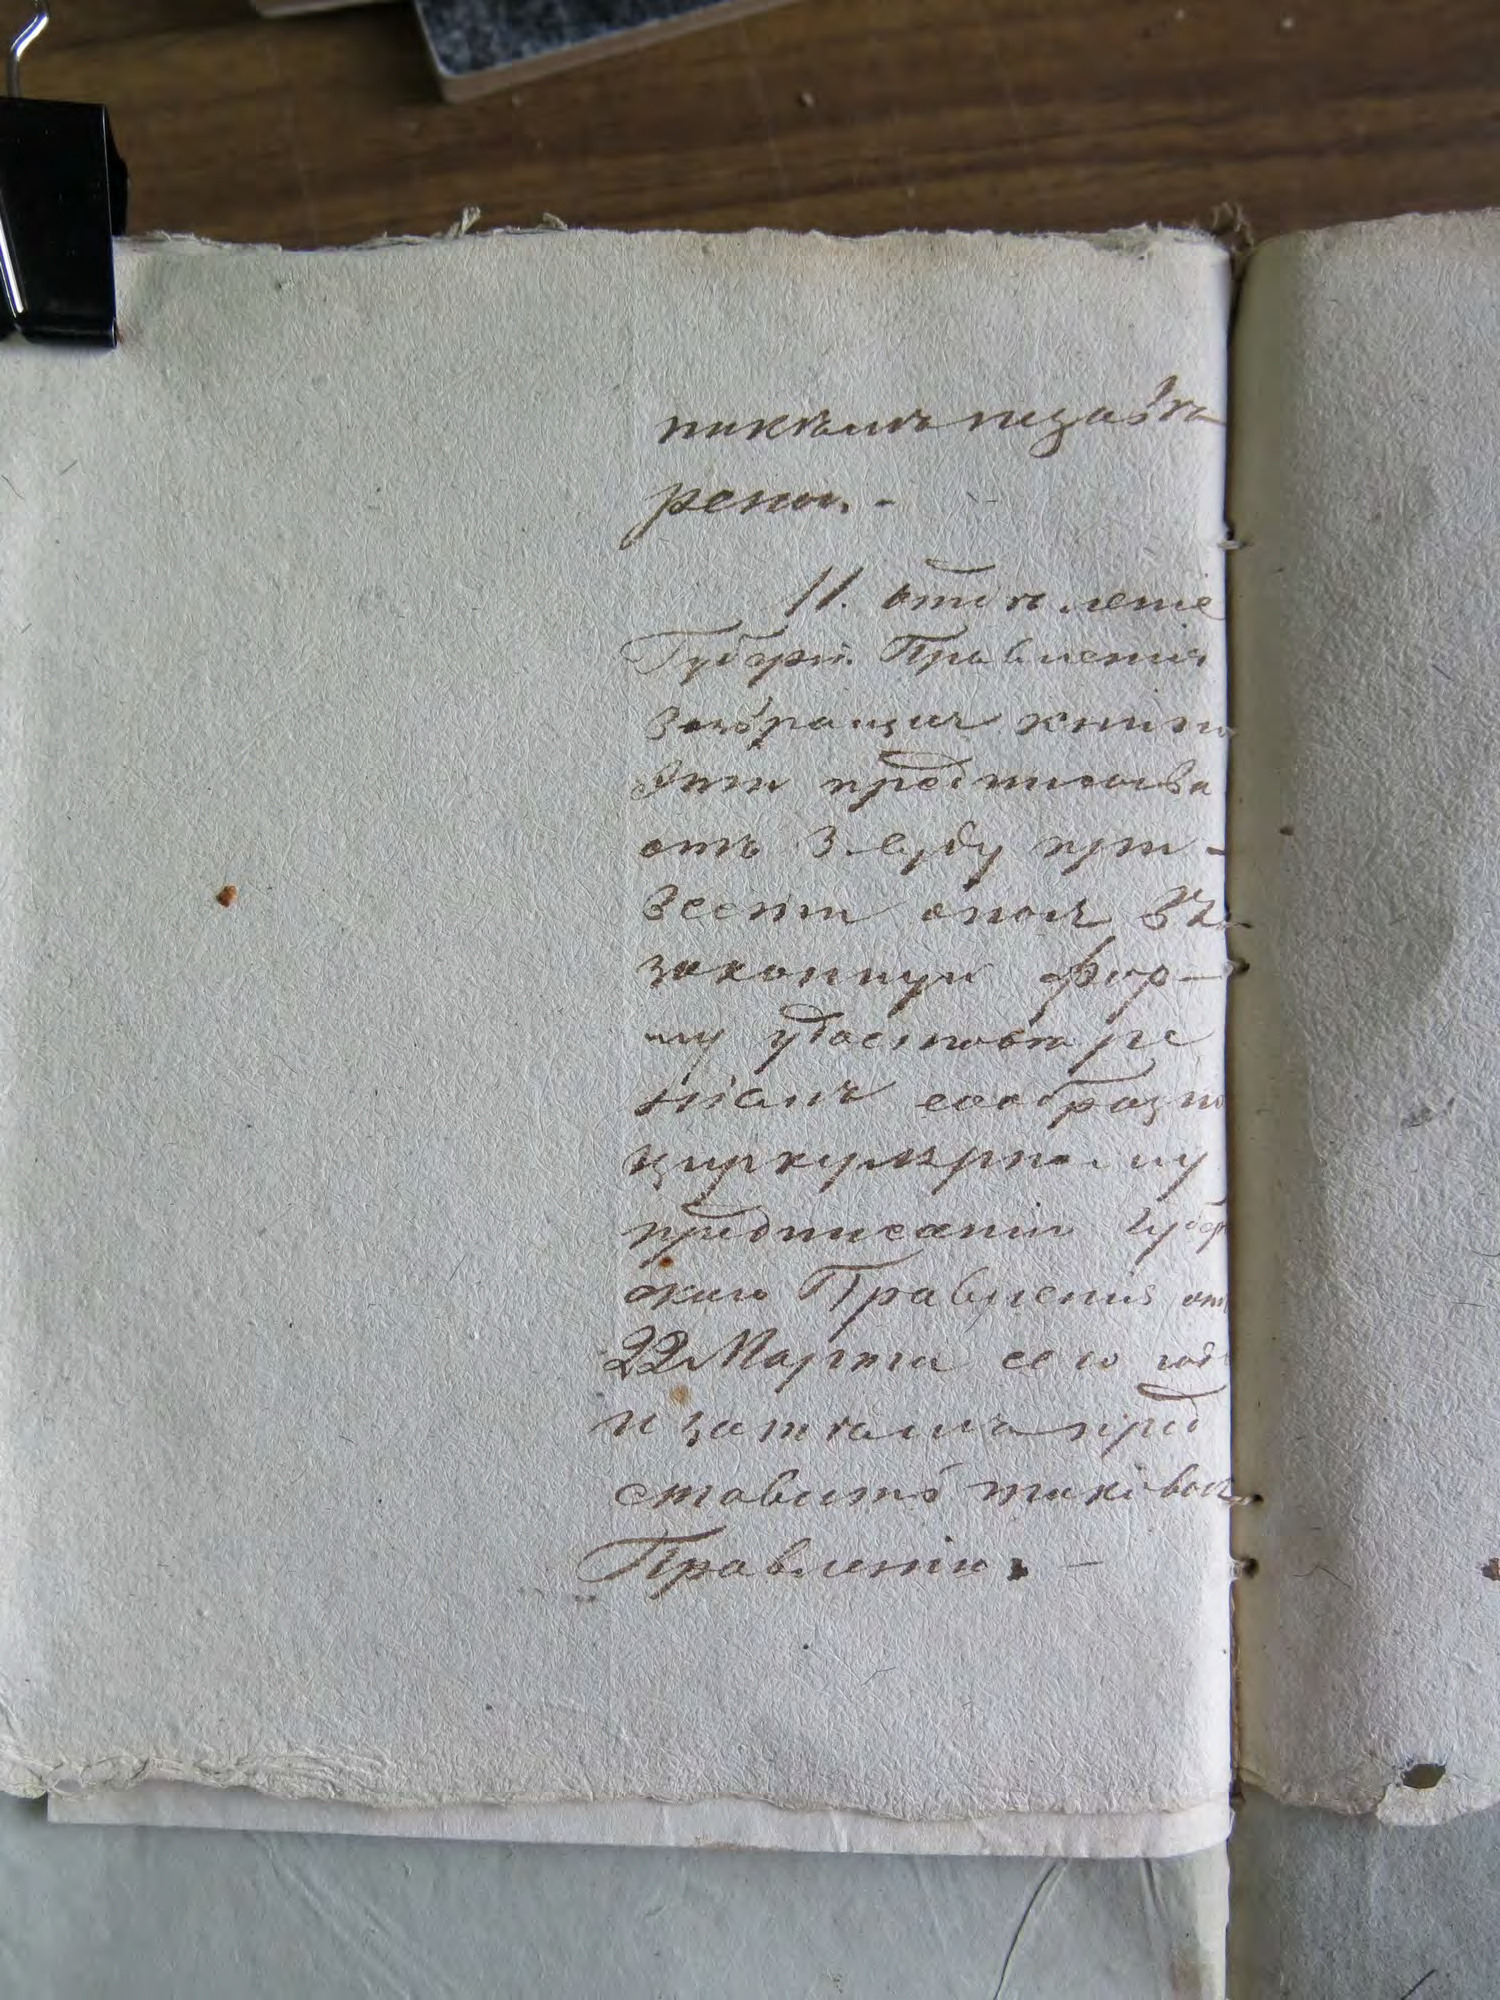 никѣмъ незавѣ
рены. -
11. Отдѣленіе
Губерн. Правленія
возвращая книги
эти предписыва
етъ Зем суду при-
вести оныя въ
законную фор-
му удостовѣре
ніемъ сообразно
циркулярному
предписанію Губер
скаго Правленія отъ
22 Марта сего года
и затѣмъ пред
ставить таковыя
Правленію. -